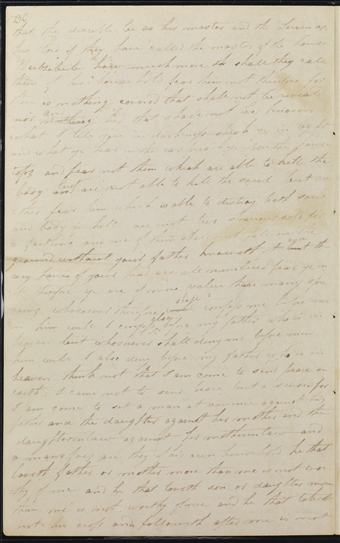 that the servable be as his master and the servant as
his lord if they have called the master of the house
Belsibub how much more so shall they call
them of his house hold fear them not therefore for
there is nothing covered that shall not be reveald
nor any thing hid that shall not be known
what I tell you in darkness speak ye in light
and what ye hear in the ear preach ye upon the house
tops and fear not them which are able to kill the
body but are not able to kill the soul but
fear him which is able to destroy both soul
and body in hell are not two sparrows sold for
a farthing and one of them shall not fall on the
ground without your father knoweth it and the
very hairs of your head are all numbered fear ye
not therefore ye are of more value than many
whosoever therefore shall confess me before men
him will I confess before my father who is in
heaven but whosoever shall deny me before men
him will I also deny before my father who is in
heaven think not that I am come to send peace on
earth I came not to send peace but a sword for
I am come to set a man at variance against his
father and the daughter against her mother and the
daughterinlaw against her motherinlaw and
a mans foes are they of his own household he that
loveth father or mother more than me is not wor
thy of me and he that loveth son or daughter more
than me is not worthy of me and he that taketh
not his cross and followeth after me is not